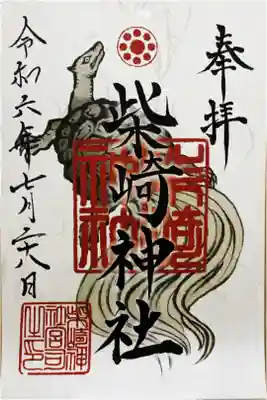 奉拝
柴崎神社
令和六年七月二十八日